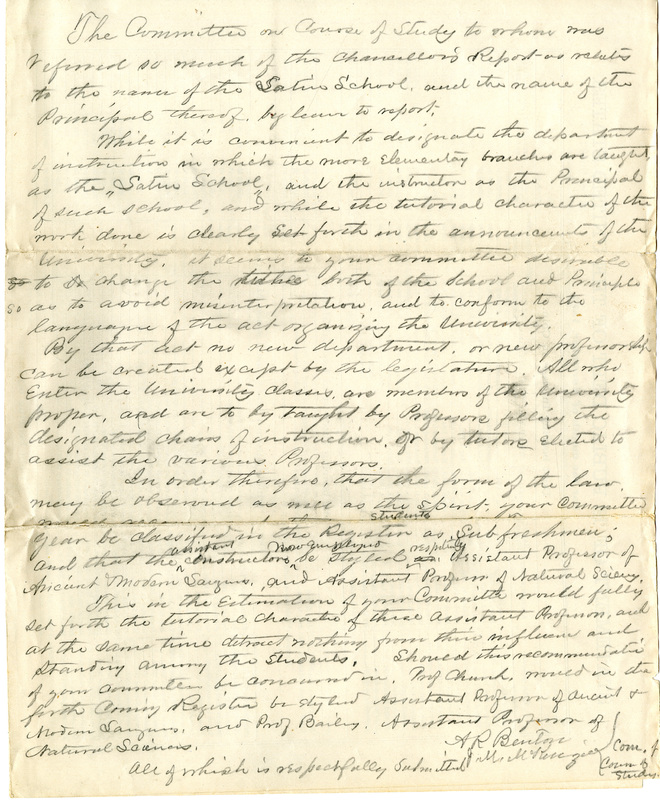 The Committee on Course of Study to whom was
referred so much of the Chancellor's Report as relates
to the name of the Latin School, and the name of the
Principal thereof, beg leave to report;
While it is convenient to designate the department
of instruction in which the more Elementary branches are taught,
as the "Latin School", and the instructor as the Principal
of such school, and while the tutorial character of the
work done is clearly set forth in the announcements of the
University, it seems to your committee desirable
to change the both of the School and Principle
so as to avoid misinterpretation, and to conform to the
language of the act organizing the University.
By that act no new department, or new professorship
can be created except by the legislature. All who
Enter the University classes, are members of the University
proper, and are to by taught by Professors filling the
designated chairs of instruction, or by tutors elected to
assist the various Professors.
In order therefore, that the form of the law
may be observed as well as the Spirit, your Committee
would
Students
year be classified in the Register as Sub freshmen;
assistant now employed respectively
and that the instructors be styled Assistant Professor of
Ancient Modern Langues, and Assistant Professor of Natural Science,
This in the Estimation of your Committe would fully
set forth the tutorial character of these Assistant Professors, and
at the same time detract nothing from their influence and
standing among the Students. Should this recommendation
of your committee be concurred in, Prof Church, would in the
forth Coming Register be styled Assistant Professor of Ancient &
Modern Langues, and Prof. Bailey, Assistant Professor of
Natural Sciences.
A R Benton
All of which is respectfully Submitted
McKenzie
Com. of
Course of
Study.